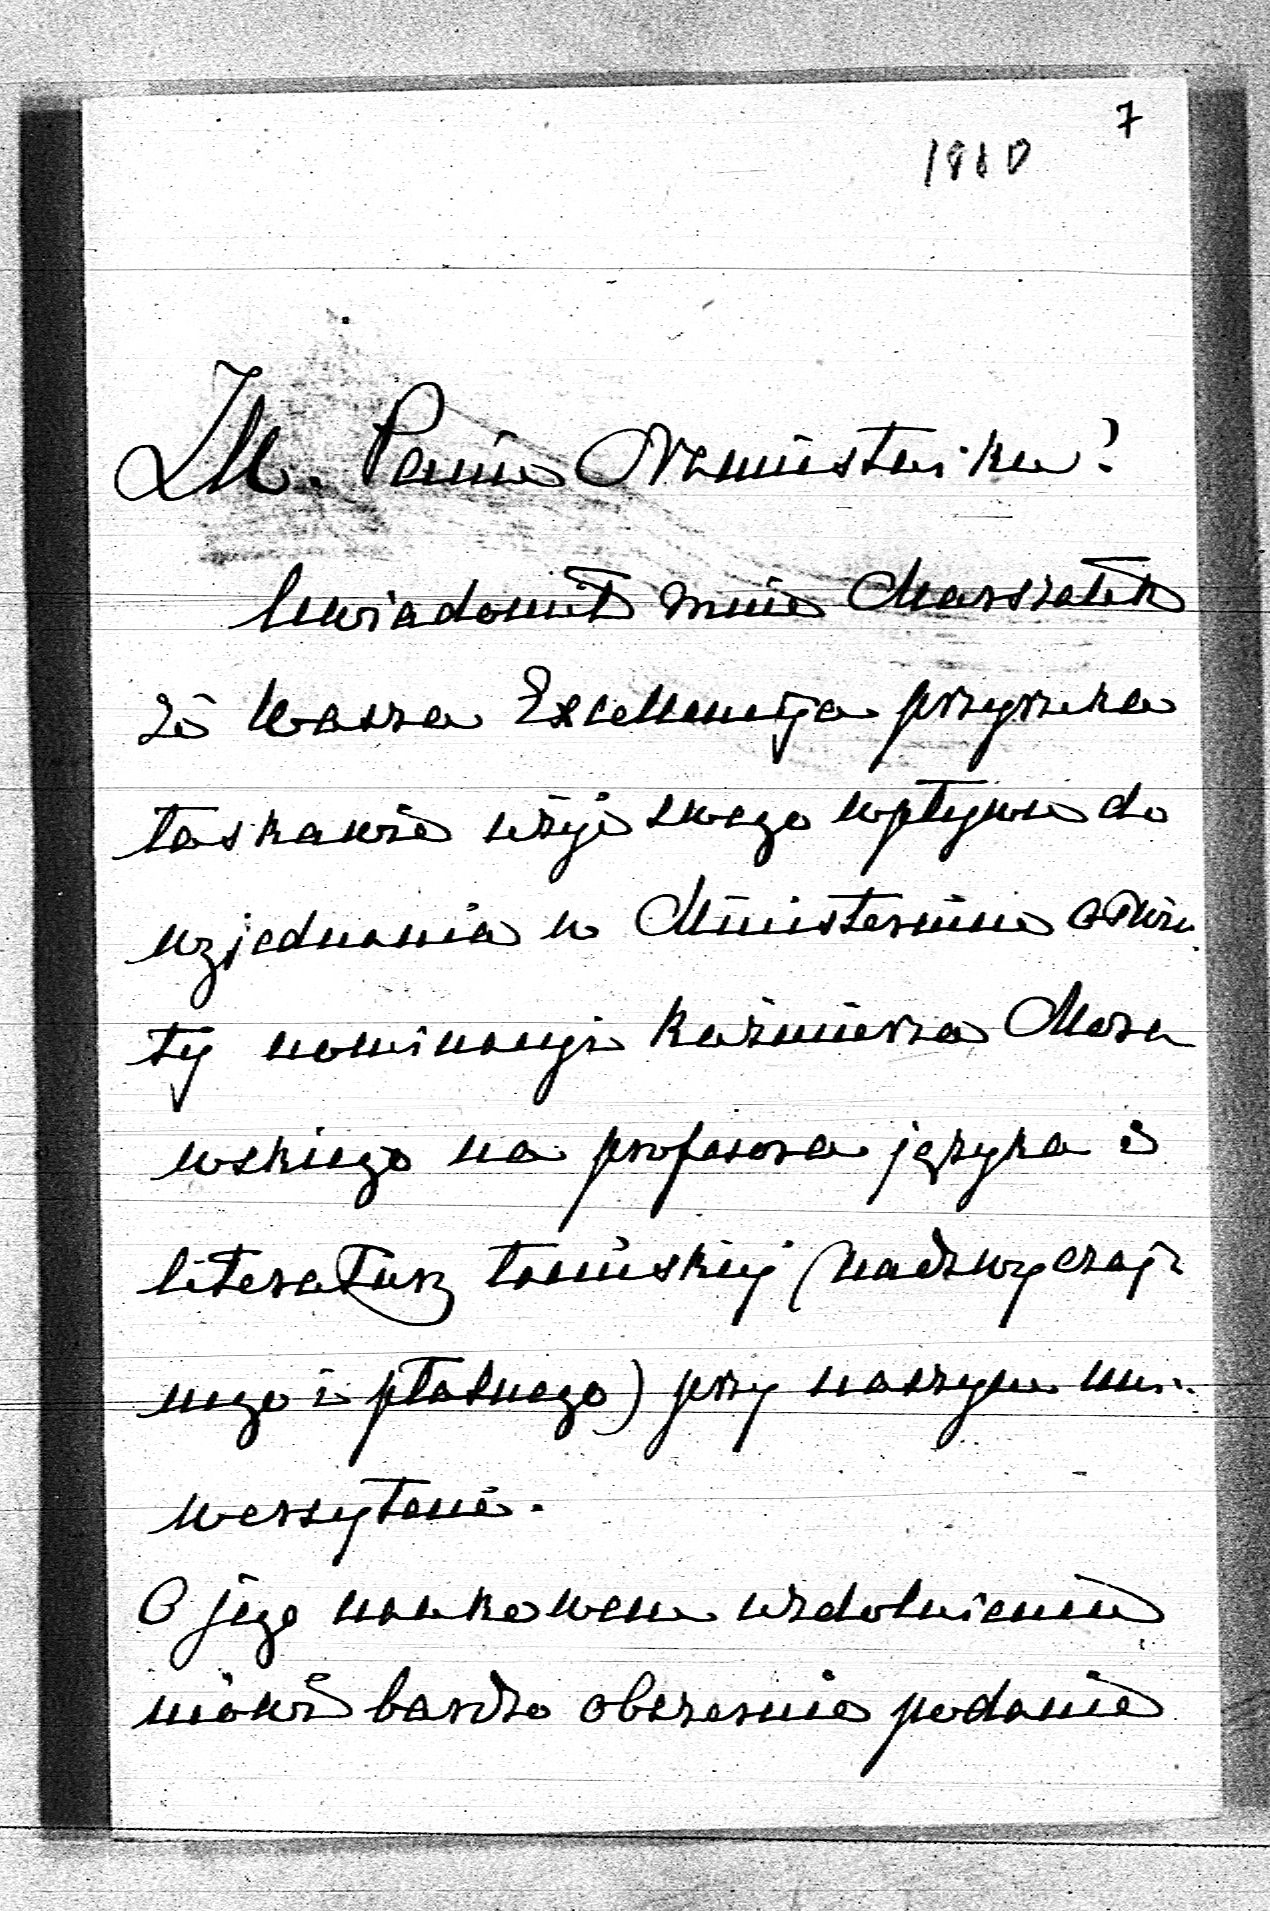 7
1880
JW. Panie Namiestniku!
Uwiadomił mnie Marszałek
że Wasza Excellencyja przyrzeka
łaskawie użyć swego wpływu do
uzjednania w Ministerium oświa
ty nominacyi Kaźmierza Mora
wskiego na profesora języka i
literatury łacińskiej (nadzwyczaj
nego i płatnego) przy naszym uni
wersytecie.
O jego naukowem uzdolnieniu
mówi bardzo obszernie podanie